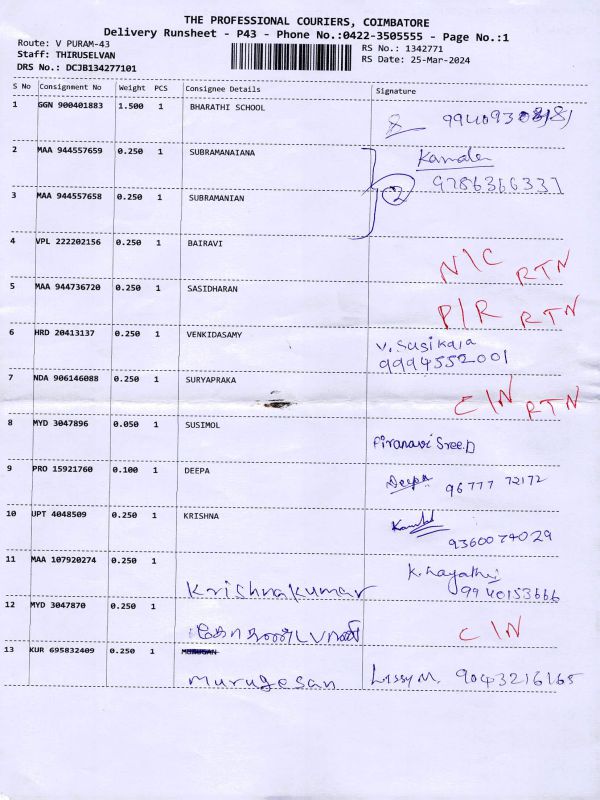 THE PROFESSIONAL COURIERS, COIMBATORE
Delivery Runsheet - P43 - Phone No.:0422-3505555 - Page No.:1
Route: V PURAM-43
RS No.: 1342771
Staff: THIRUSELVAN
RS Date: 25-Mar-2024
DRS No.: DCJB134277101
S No Consignment No Weight PCS Consignee Details Signature
1 GGN 900401883 1.500 1 BHARATHI SCHOOL
2 MAA 944557659 0.250 1 SUBRAMANAIANA
9786366337
3 MAA 944557658 0.250 1 SUBRAMANIAN 2
4 VPL 222202156 0.250 1 BAIRAVI N/C RTN
5 MAA 944736720 0.250 1 SASIDHARAN P/R RTN
6 HRD 20413137 0.250 1 VENKIDASAMY V. Sasikala
9994552001
7 NDA 906146088 0.250 1 SURYAPRAKA C/N RTN
8 MYD 3047896 0.050 1 SUSIMOL Piranavi Sree.D
9 PRO 15921760 0.100 1 DEEPA Deepa 96777 72172
10 UPT 4048509 0.250 1 KRISHNA
9360074029
11 MAA 107920274 0.250 1 Krishnakumar
9940153666
12 MYD 3047870 0.250 1 C/N
13 KUR 695832409 0.250 1 Murugesan Lissy M. 9043216165